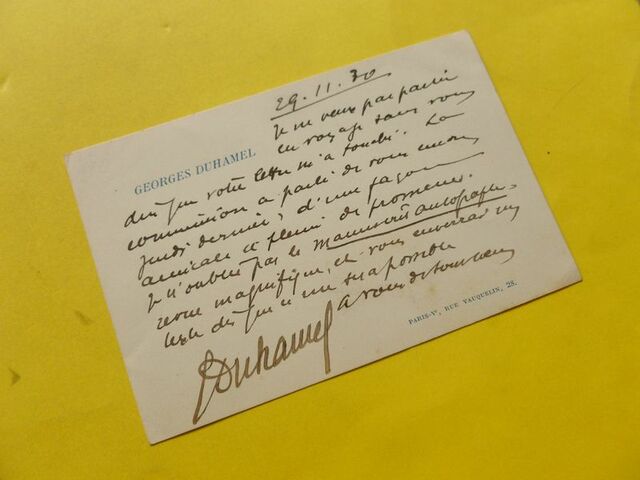 29.11.30
GEORGES DUHAMEL
Je ne veux pas partir
en voyage sans vous
dire que votre lettre m'a touché. La
commission a parlé de vous encore
jeudi dernier, d'une façon
amicale et pleine de promesses.
Je n'oublie pas le Manuscrit autographe,
revue magnifique, et vous enverrai un
texte dès que ce me sera possible
A vous de tout cœur
GDuhamel
PARIS-Vᵉ, RUE VAUQUELIN, 28.